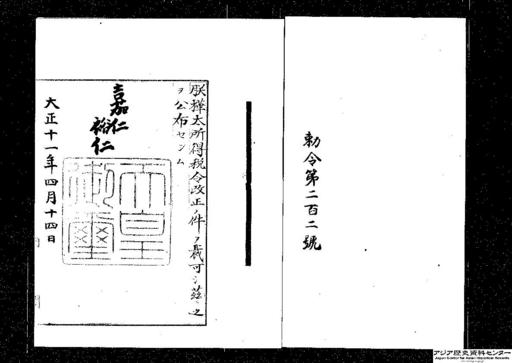 勅令第二百二號
朕樺太所得税令改正ノ件ヲ裁可シ茲ニ之
ヲ公布セシム
嘉仁
裕仁
天皇御璽
大正十一年四月十四日
アジア歴史資料センター
Japan Center for Asian Historical Records